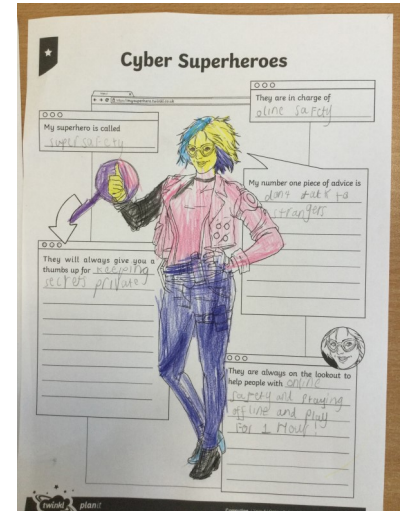 Cyber Superheroes
They are in charge of
oline Safcty
My superhero is called
supersafcty
My number one piece of advice is
dont talk to
strangers
They will always give you a
thumbs up for keeping
secrets private
They are always on the lookout to
help people with online
safety and
offline and play
For 1 Hour!
twinkl planit